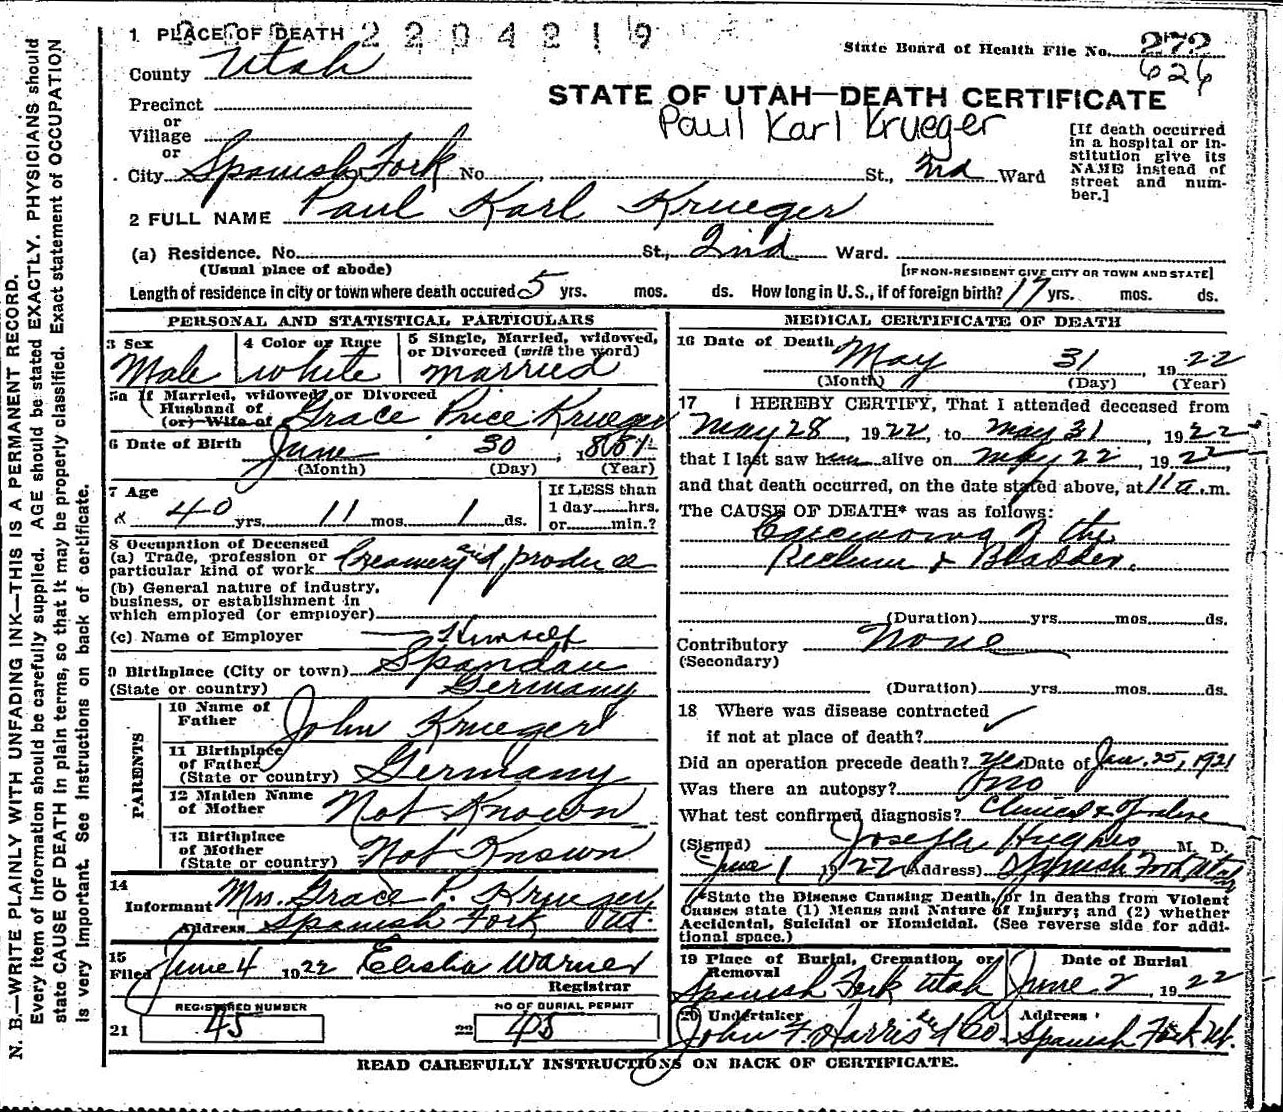 1 PLACE OF DEATH 2204219
State Board of Health File No. 272
626
County Utah
STATE OF UTAH—DEATH CERTIFICATE
Precinct
or
Village
or
Paul Karl Krueger
[If death occurred in a hospital or institution give its NAME instead of street and number.]
City Spanish Fork No. St., 2nd Ward
2 FULL NAME Paul Karl Krueger
(a) Residence. No. St., 2nd Ward.
(Usual place of abode) [IF NON-RESIDENT GIVE CITY OR TOWN AND STATE]
Length of residence in city or town where death occured 5 yrs. mos. ds. How long in U.S., if of foreign birth? 17 yrs. mos. ds.
PERSONAL AND STATISTICAL PARTICULARS
3 Sex Male
4 Color or Race white
5 Single, Married, widowed, or Divorced (write the word) married
5a If Married, widowed, or Divorced
Husband of
(or) Wife of Grace Price Krueger
6 Date of Birth June 30, 1881
(Month) (Day) (Year)
7 Age 40 yrs. 11 mos. 1 ds.
If LESS than
1 day hrs.
or min.?
8 Occupation of Deceased
(a) Trade, profession or
particular kind of work Creamery and produce
(b) General nature of industry,
business, or establishment in
which employed (or employer)
(c) Name of Employer Himself
9 Birthplace (City or town) Spandau
(State or country) Germany
PARENTS
10 Name of
Father John Krueger
11 Birthplace
of Father
(State or country) Germany
12 Maiden Name
of Mother Not Known
13 Birthplace
of Mother
(State or country) Not Known
14
Informant Mrs. Grace P. Krueger
Address Spanish Fork Ut.
15
Filed June 4 1922 Elisha Warner
Registrar
REGISTERED NUMBER
21 45
NO OF BURIAL PERMIT
22 45
MEDICAL CERTIFICATE OF DEATH
16 Date of Death May 31, 1922
(Month) (Day) (Year)
17 I HEREBY CERTIFY, That I attended deceased from
May 28, 1922, to May 31, 1922
that I last saw him alive on May 22, 1922
and that death occurred, on the date stated above, at 11 a.m.
The CAUSE OF DEATH* was as follows:
Carcinoma of the
Rectum & Bladder.
(Duration) yrs. mos. ds.
Contributory None
(Secondary)
(Duration) yrs. mos. ds.
18 Where was disease contracted
if not at place of death?
Did an operation precede death? Yes Date of Jan. 25, 1921
Was there an autopsy? no
What test confirmed diagnosis? Clinical &
(Signed) Joseph Hughes M. D.
June 1 1922 (Address) Spanish Fork Utah
*State the Disease Causing Death, or in deaths from Violent
Causes state (1) Menus and Nature of Injury; and (2) whether
Accidental, Suicidal or Homicidal. (See reverse side for addi-
tional space.)
19 Place of Burial, Cremation, or
Removal
Spanish Fork Utah
Date of Burial
June 2, 1922
20 Undertaker
John F. Harris and Co.
Address
Spanish Fork Ut.
READ CAREFULLY INSTRUCTIONS ON BACK OF CERTIFICATE.
N. B.—WRITE PLAINLY WITH UNFADING INK—THIS IS A PERMANENT RECORD.
Every item of information should be carefully supplied. AGE should be stated EXACTLY. PHYSICIANS should
state CAUSE OF DEATH in plain terms, so that it may be properly classified. Exact statement of OCCUPATION
is very important. See instructions on back of certificate.